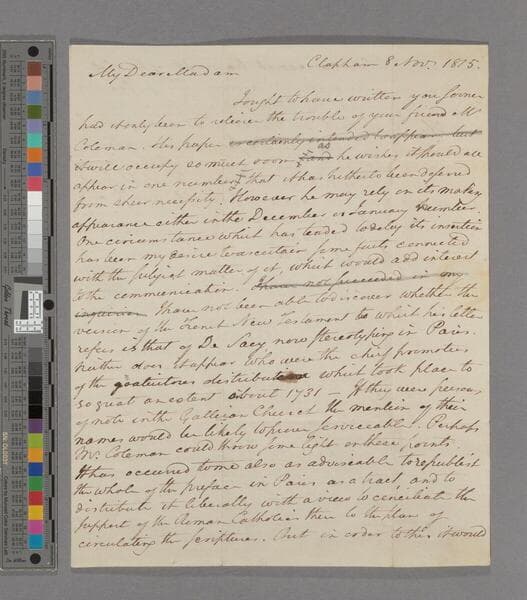 Clapham 8 Nov. 1815.
My Dear Madam
I ought to have written you sooner
had it only been to relieve the trouble of your friend Mr
Coleman. His paper is certainly intended to appear but
it will occupy so much room & and as he wishes it should all
appear in one number, that it has hitherto been deferred
from sheer necessity. However he may rely on its making its
appearance either in the December or January Number.
One circumstance which has tended to delay its insertion
has been my desire to ascertain some facts connected
with the subject matter of it, which would add interest
to the communication. I have not succeeded in my
inquiries I have not been able to discover whether the
version of the French New Testament to which his letter
refers is that of De Sacy now stereotyping in Paris.
Neither does it appear who were the chief promoters
of the gratuitous distribution which took place to
so great an extent about 1731 — If there were persons
of note in the Gallican Church the mention of their
names would be likely to prove serviceable. Perhaps
Mr. Coleman could throw some light on these points.
It has occurred to me also as adviseable to republish
the whole of the preface in Paris as a tract, and to
distribute it liberally with a view to conciliate the
support of the Roman Catholics there to the plan of
circulating the Scriptures. But in order to this it would